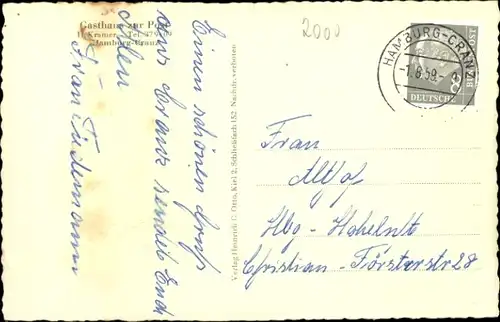 Gasthaus zur Post
H. Kramer, Tel.
Hamburg-Cranz
2000
HAMBURG-CRANZ
-1.8.59.
DEUTSCHE
8
Einen schönen Gruß
aus Cranz sendet Euch
allen
Frau Tiedemann
Verlag Heinrich C. Otto, Kiel 2, Schließfach 152 Nachdr. verboten
Frau
Althof
Hbg-Hoheluft
Christian-Försterstr 28